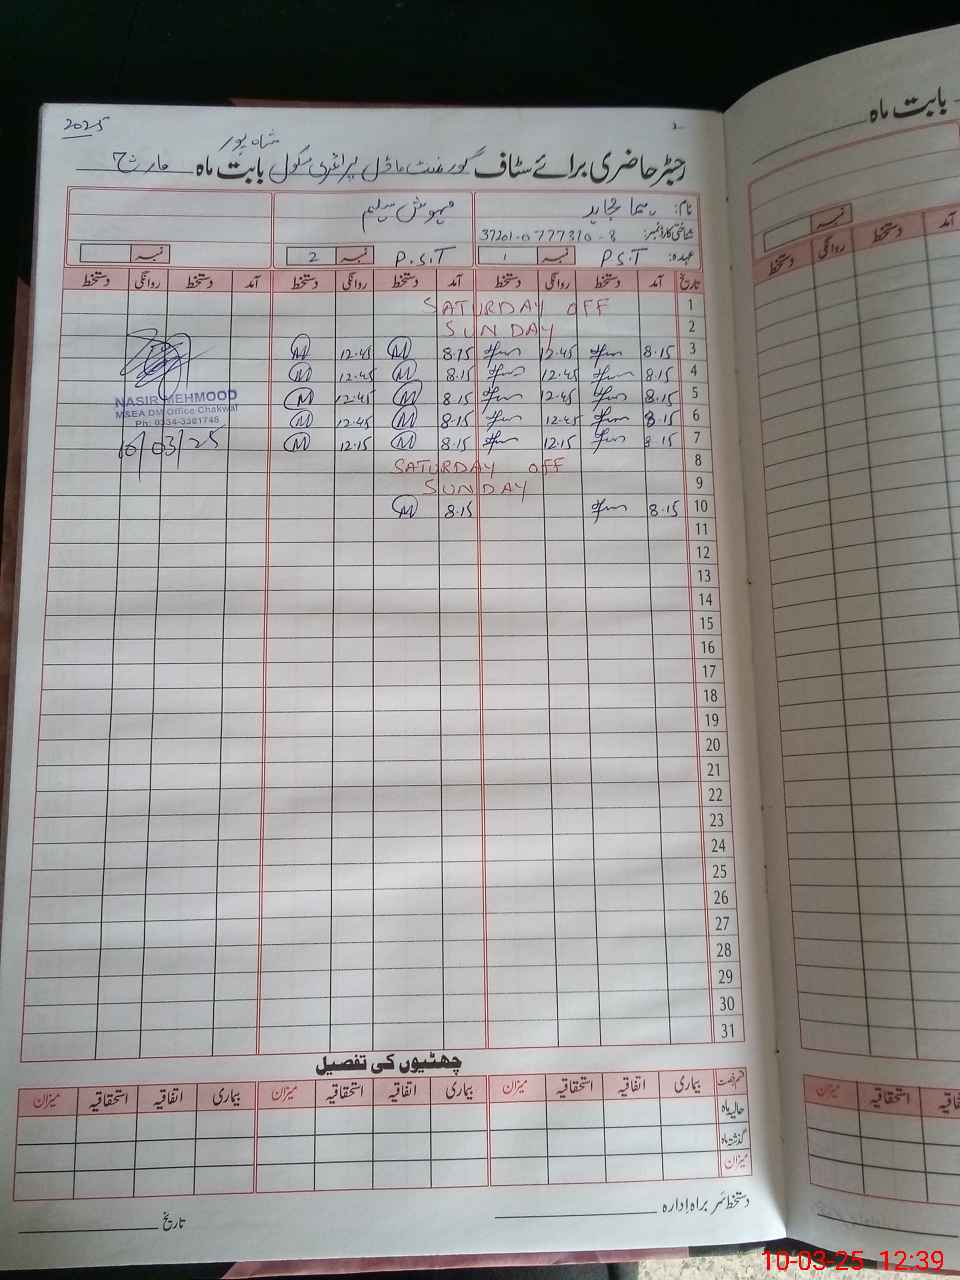 2025
شاہ پور
رجسٹر حاضری برائے سٹاف گورنمنٹ ماڈل پرائمری سکول بابت ماہ مارچ
نام: سیما مہوش سلیم
شناختی کارڈ نمبر: 37201-0777310-8
عہدہ: P.S.T نمبر 1 P.S.T نمبر 2 نمبر
تاریخ آمد دستخط روانگی دستخط آمد دستخط روانگی دستخط آمد دستخط روانگی دستخط
1 SATURDAY OFF
2 SUNDAY
3 8.15 12.45 8.15 M 12.45 M
4 8.15 12.45 8.15 M 12.45 M
5 8.15 12.45 8.15 M 12.45 M
6 8.15 12.45 8.15 M 12.45 M
7 8.15 12.15 8.15 M 12.15 M
NASIR MEHMOOD
MSEA DM Office Chakwal
Ph: 0334-3381748
10/03/25
8 SATURDAY OFF
9 SUNDAY
10 8.15 8.15 M
11
12
13
14
15
16
17
18
19
20
21
22
23
24
25
26
27
28
29
30
31
چھٹیوں کی تفصیل
قسم رخصت بیماری اتفاقیہ استحقاقیہ میزان بیماری اتفاقیہ استحقاقیہ میزان بیماری اتفاقیہ استحقاقیہ میزان
حالیہ ماہ
گذشتہ ماہ
میزان
دستخط سربراہ ادارہ تاریخ
بابت ماہ
نمبر
آمد دستخط روانگی دستخط
استحقاقیہ میزان
10-03-25 12:39